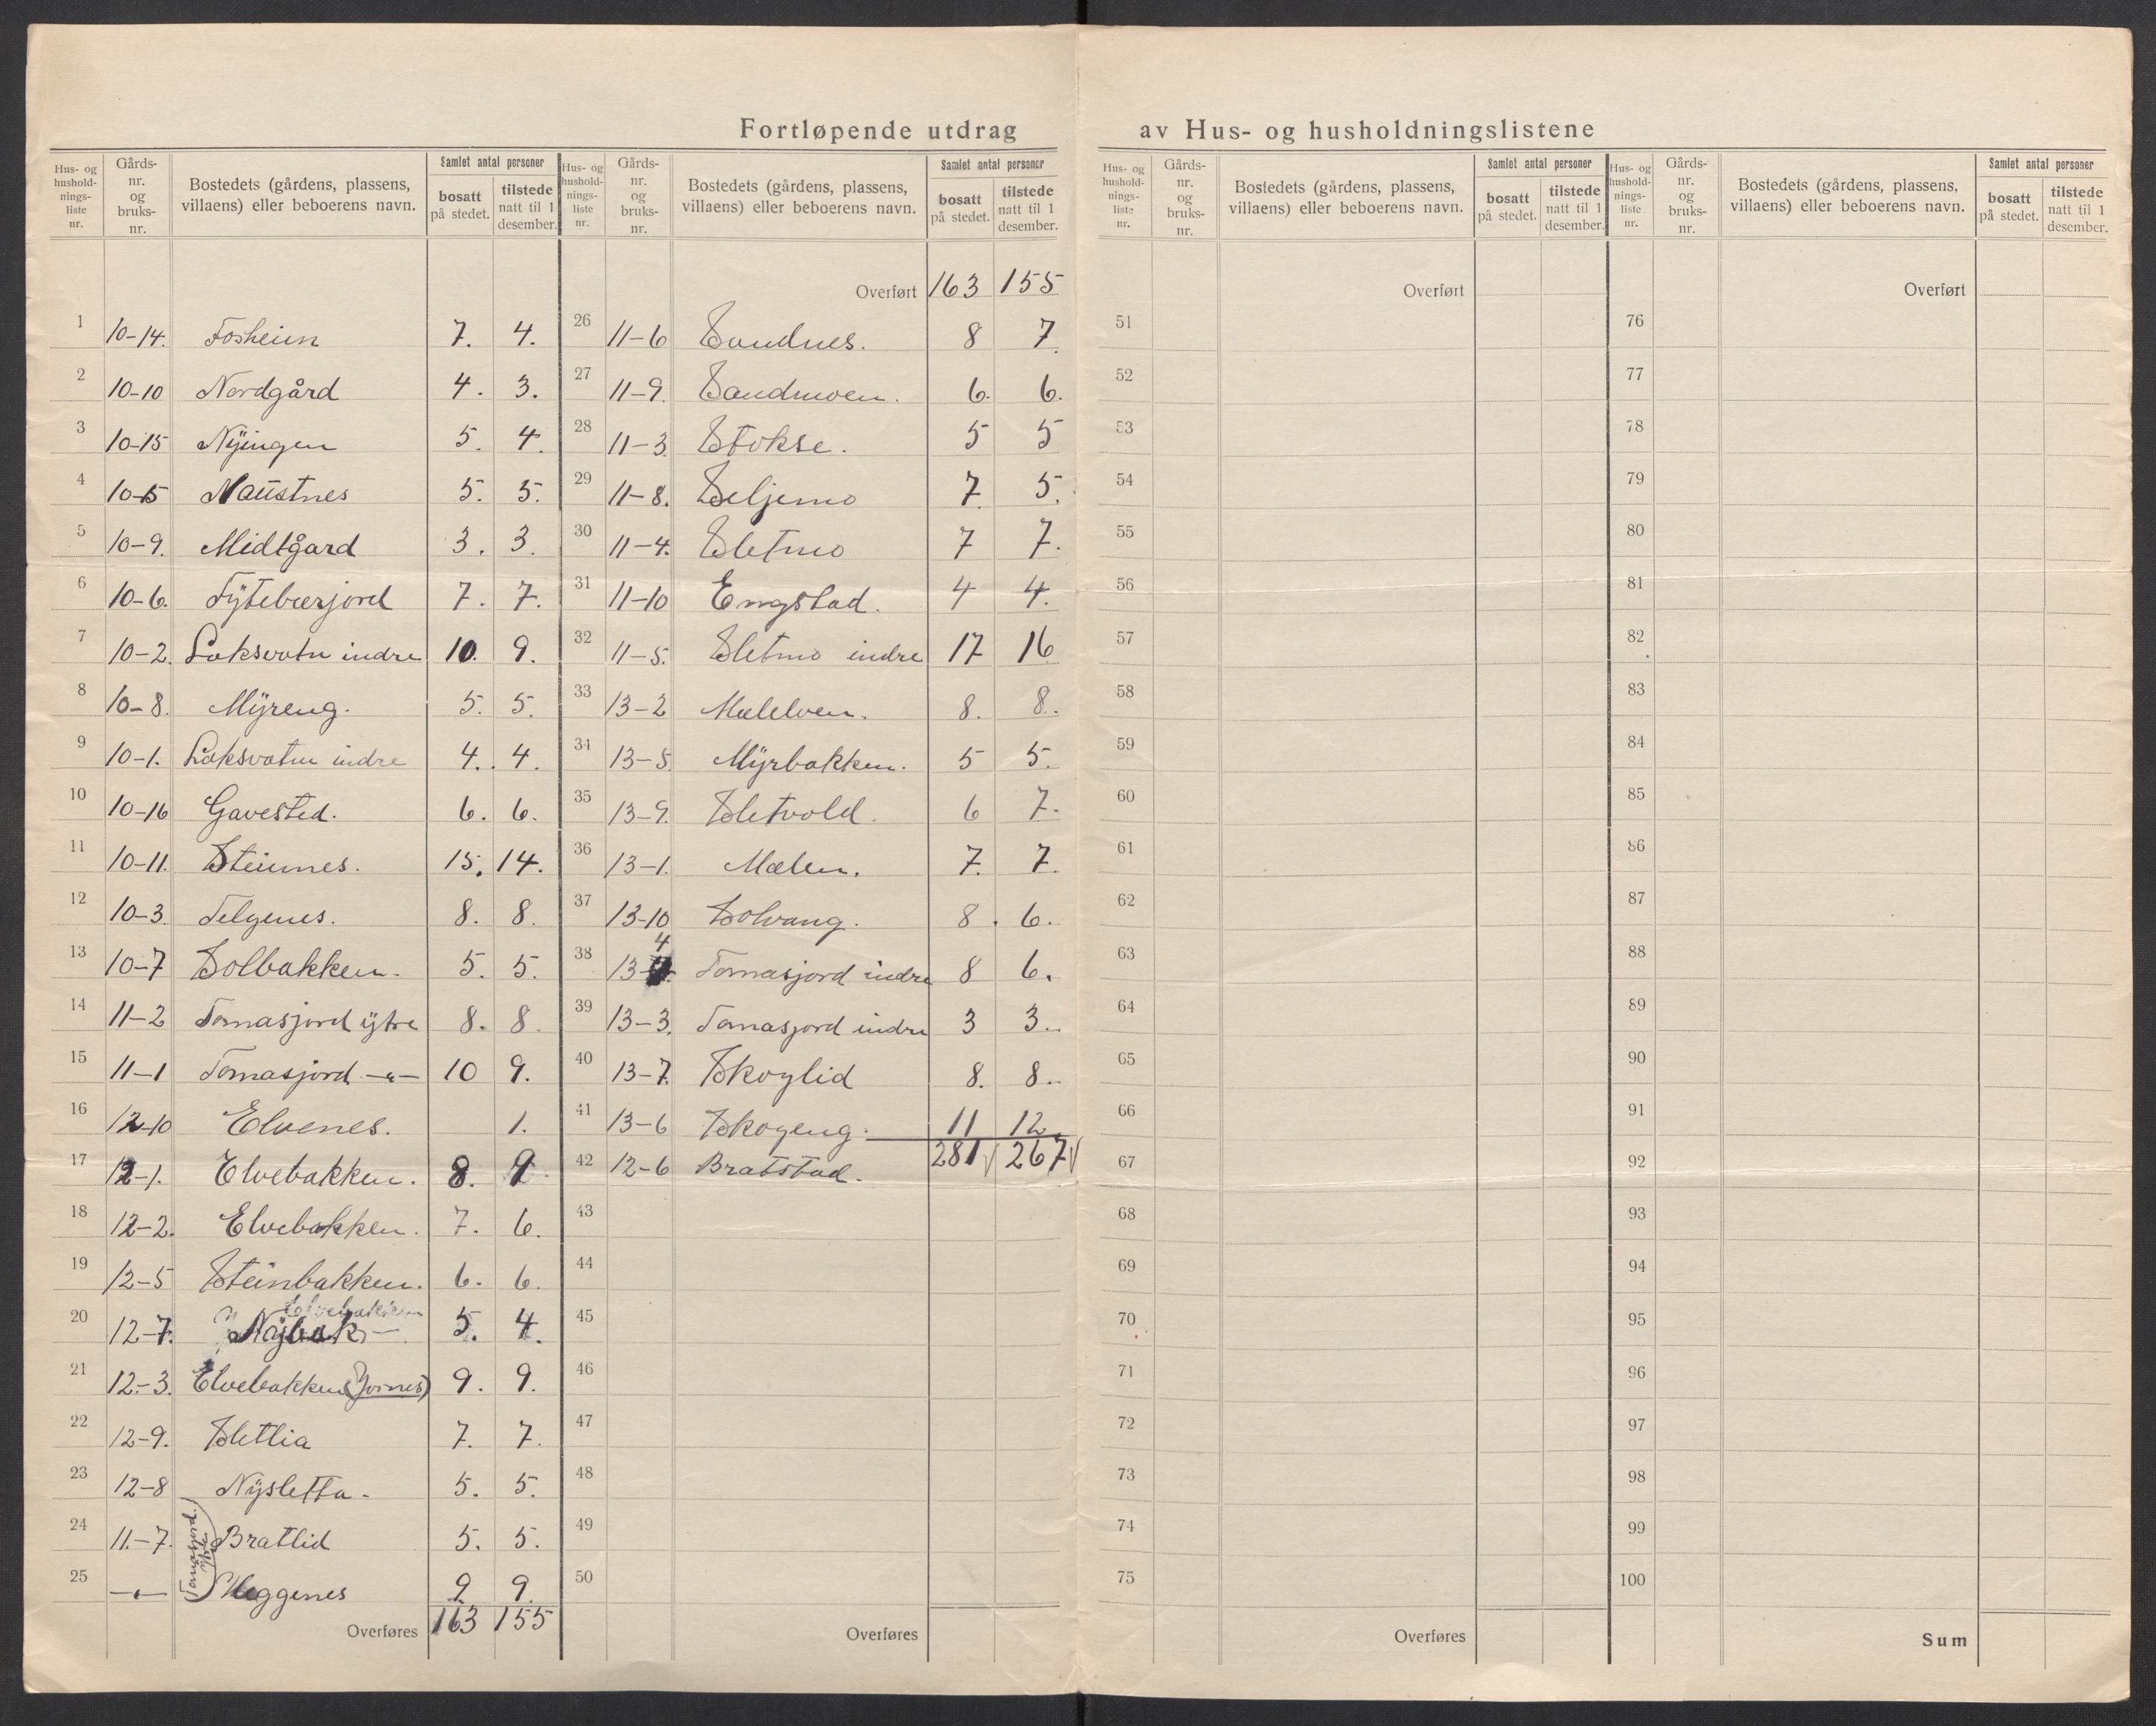 Fortløpende utdrag av Hus- og husholdningslistene
Hus- og hushold-nings-liste nr. Gårds-nr. og bruks-nr. Bostedets (gårdens, plassens, villaens) eller beboerens navn. Samlet antal personer bosatt på stedet. tilstede natt til 1 desember.
1 10-14. Fosheim 7. 4.
2 10-10 Nordgård 4. 3.
3 10-15 Nÿingen 5. 4.
4 10-5 Naustnes 5. 5.
5 10-9. Midtgård 3. 3.
6 10-6. Tÿtebærjord 7. 7.
7 10-2. Laksvatn indre 10. 9.
8 10-8. Mÿreng. 5. 5.
9 10-1. Laksvatn indre 4. 4.
10 10-16 Gavested. 6. 6.
11 10-11. Steinnes. 15. 14.
12 10-3. Telgenes. 8. 8.
13 10-7 Solbakken. 5. 5.
14 11-2 Tomasjord ÿtre 8. 8.
15 11-1 Tomasjord -"- 10 9.
16 12-10 Elvenes. 1.
17 12-1. Elvebakken. 8. 9.
18 12-2. Elvebakken. 7. 6.
19 12-5 Steinbakken. 6. 6.
Elvebakken
20 12-7. Nÿbak 5. 4.
21 12-3. Elvebakken (Jornes) 9. 9.
22 12-9. Slettlia 7. 7.
23 12-8 Nÿsletta. 5. 5.
24 11-7. Bratlid 5. 5.
Tomasjord. ÿtre
25 -"- Heggenes 9. 9.
Overføres 163 155
Hus- og hushold-nings-liste nr. Gårds-nr. og bruks-nr. Bostedets (gårdens, plassens, villaens) eller beboerens navn. Samlet antal personer bosatt på stedet. tilstede natt til 1 desember.
Overført 163 155
26 11-6 Sandnes. 8 7.
27 11-9. Sandmoen. 6. 6.
28 11-3 Stokse. 5 5
29 11-8. Seljemo 7. 5.
30 11-4. Sletmo 7 7.
31 11-10 Engstad. 4 4.
32 11-5. Sletmo indre 17 16
33 13-2 Mælelven. 8. 8.
34 13-5. Mÿrbakken. 5 5.
35 13-9. Sletvold. 6 7.
36 13-1. Mælen. 7. 7.
37 13-10 Solvang. 8. 6.
38 13-4 Tomasjord indre 8 6.
39 13-3. Tomasjord indre 3 3.
40 13-7. Skoglid 8. 8.
41 13-6 Skogeng. 11 12.
42 12-6 Bratstad. 281 267
43
44
45
46
47
48
49
50
Overføres
Hus- og hushold-nings-liste nr. Gårds-nr. og bruks-nr. Bostedets (gårdens, plassens, villaens) eller beboerens navn. Samlet antal personer bosatt på stedet. tilstede natt til 1 desember.
Overført
51
52
53
54
55
56
57
58
59
60
61
62
63
64
65
66
67
68
69
70
71
72
73
74
75
Overføres
Hus- og hushold-nings-liste nr. Gårds-nr. og bruks-nr. Bostedets (gårdens, plassens, villaens) eller beboerens navn. Samlet antal personer bosatt på stedet. tilstede natt til 1 desember.
Overført
76
77
78
79
80
81
82
83
84
85
86
87
88
89
90
91
92
93
94
95
96
97
98
99
100
Sum